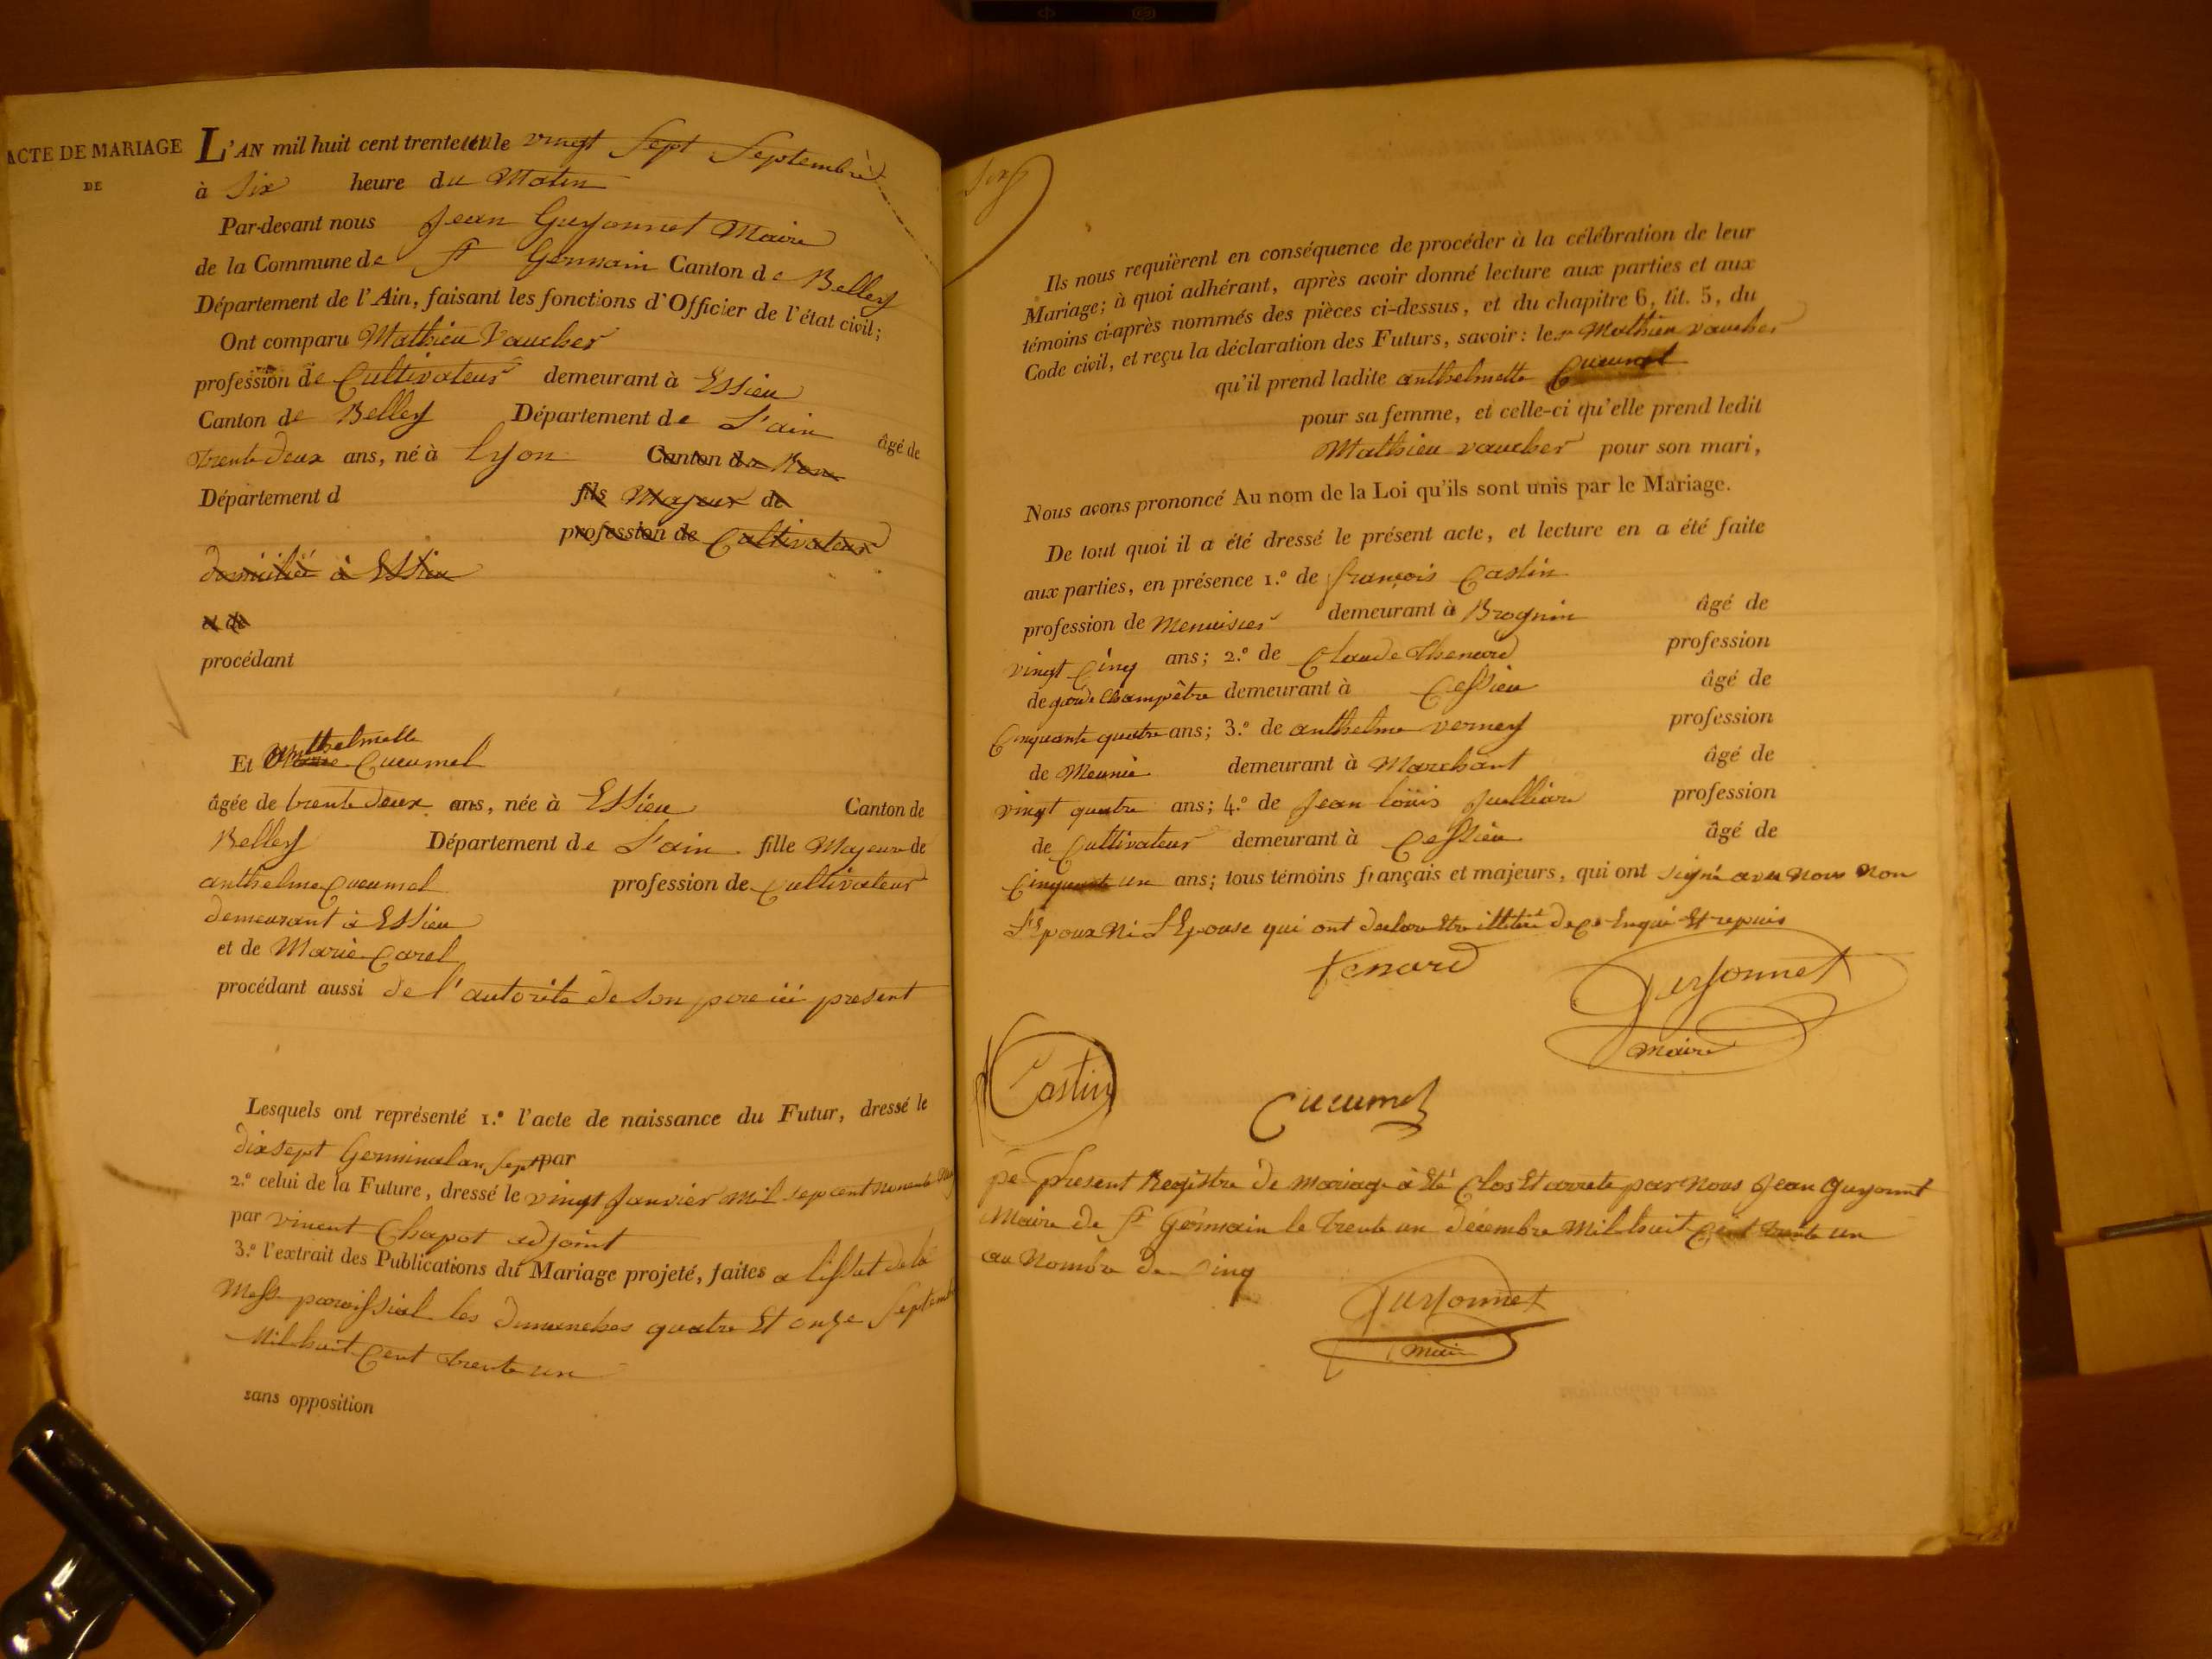 ACTE DE MARIAGE
DE
L'AN mil huit cent trente un le vingt Sept Septembre
à Six heure du Matin
Par-devant nous Jean Guyonnet Maire
de la Commune de St Germain Canton de Belley
Département de l'Ain, faisant les fonctions d'Officier de l'état civil;
Ont comparu Mathieu Vaucher
profession de Cultivateur demeurant à Essieu
Canton de Belley Département de L'ain âgé de
trente deux ans, né à Lyon Canton de
Département d fils Majeur de
profession de Cultivateur
domicilié à Essieu
et de
procédant
Et anthelmette Cucumel
âgée de trente deux ans, née à Essieu Canton de
Belley Département de L'ain fille Majeure de
anthelme Cucumel profession de Cultivateur
demeurant à Essieu
et de Marie Carel
procédant aussi de l'autorité de son pere ici present
Lesquels ont représenté 1.º l'acte de naissance du Futur, dressé le
dix sept Germinal an Sept par
2.º celui de la Future, dressé le vingt Janvier mil sept cent nonente
par vincent Chapot adjoint
3.º l'extrait des Publications du Mariage projeté, faites a lissut de la
Messe paroissial les dimanches quatre Et onze Septembre
Mil huit Cent trente un
sans opposition
Ils nous requièrent en conséquence de procéder à la célébration de leur
Mariage; à quoi adhérant, après avoir donné lecture aux parties et aux
témoins ci-après nommés des pièces ci-dessus, et du chapitre 6, tit. 5, du
Code civil, et reçu la déclaration des Futurs, savoir: le Mathieu vaucher
qu'il prend ladite anthelmette Cucumel
pour sa femme, et celle-ci qu'elle prend ledit
Mathieu vaucher pour son mari,
Nous avons prononcé Au nom de la Loi qu'ils sont unis par le Mariage.
De tout quoi il a été dressé le présent acte, et lecture en a été faite
aux parties, en présence 1.º de françois Castin
profession de Menuisier demeurant à Brognin âgé de
vingt Cinq ans; 2.º de Claude thenard profession
de garde Champêtre demeurant à Cessieu âgé de
Cinquante quatre ans; 3.º de anthelme verney profession
de Meunié demeurant à Marchant âgé de
vingt quatre ans; 4.º de Jean Loüis Juilliard profession
de Cultivateur demeurant à Cessieu âgé de
Cinquante un ans; tous témoins français et majeurs, qui ont signé avec nous non
L'Epoux Ni L'Epouse qui ont declare Etre illitéré de Ce Enqui Et repuis
tenard
Guyonnet
maire
Castin
Cucumel
Ce Present Registre de mariage à Eté Clos Et arrete par Nous Jean Guyonnet
Maire de St Germain le trente un decembre Mil huit Cent trente un
au Nombre de Cinq
Guyonnet
maire